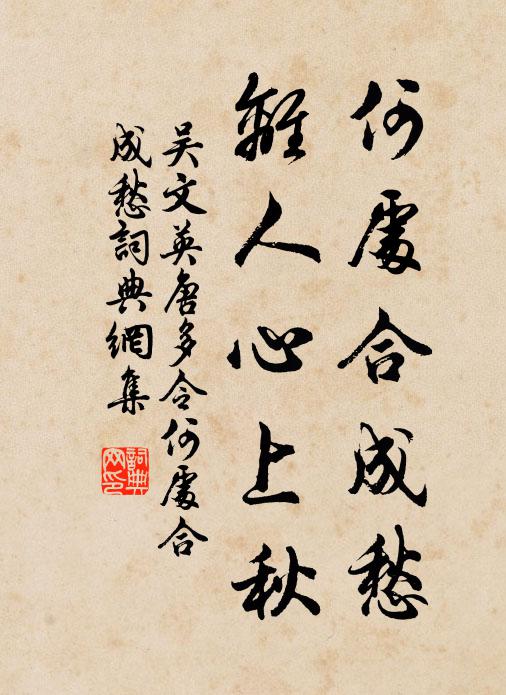 何處合成愁
離人心上秋
吴文英唐多令何處合
成愁詞典網集
詞典
网印